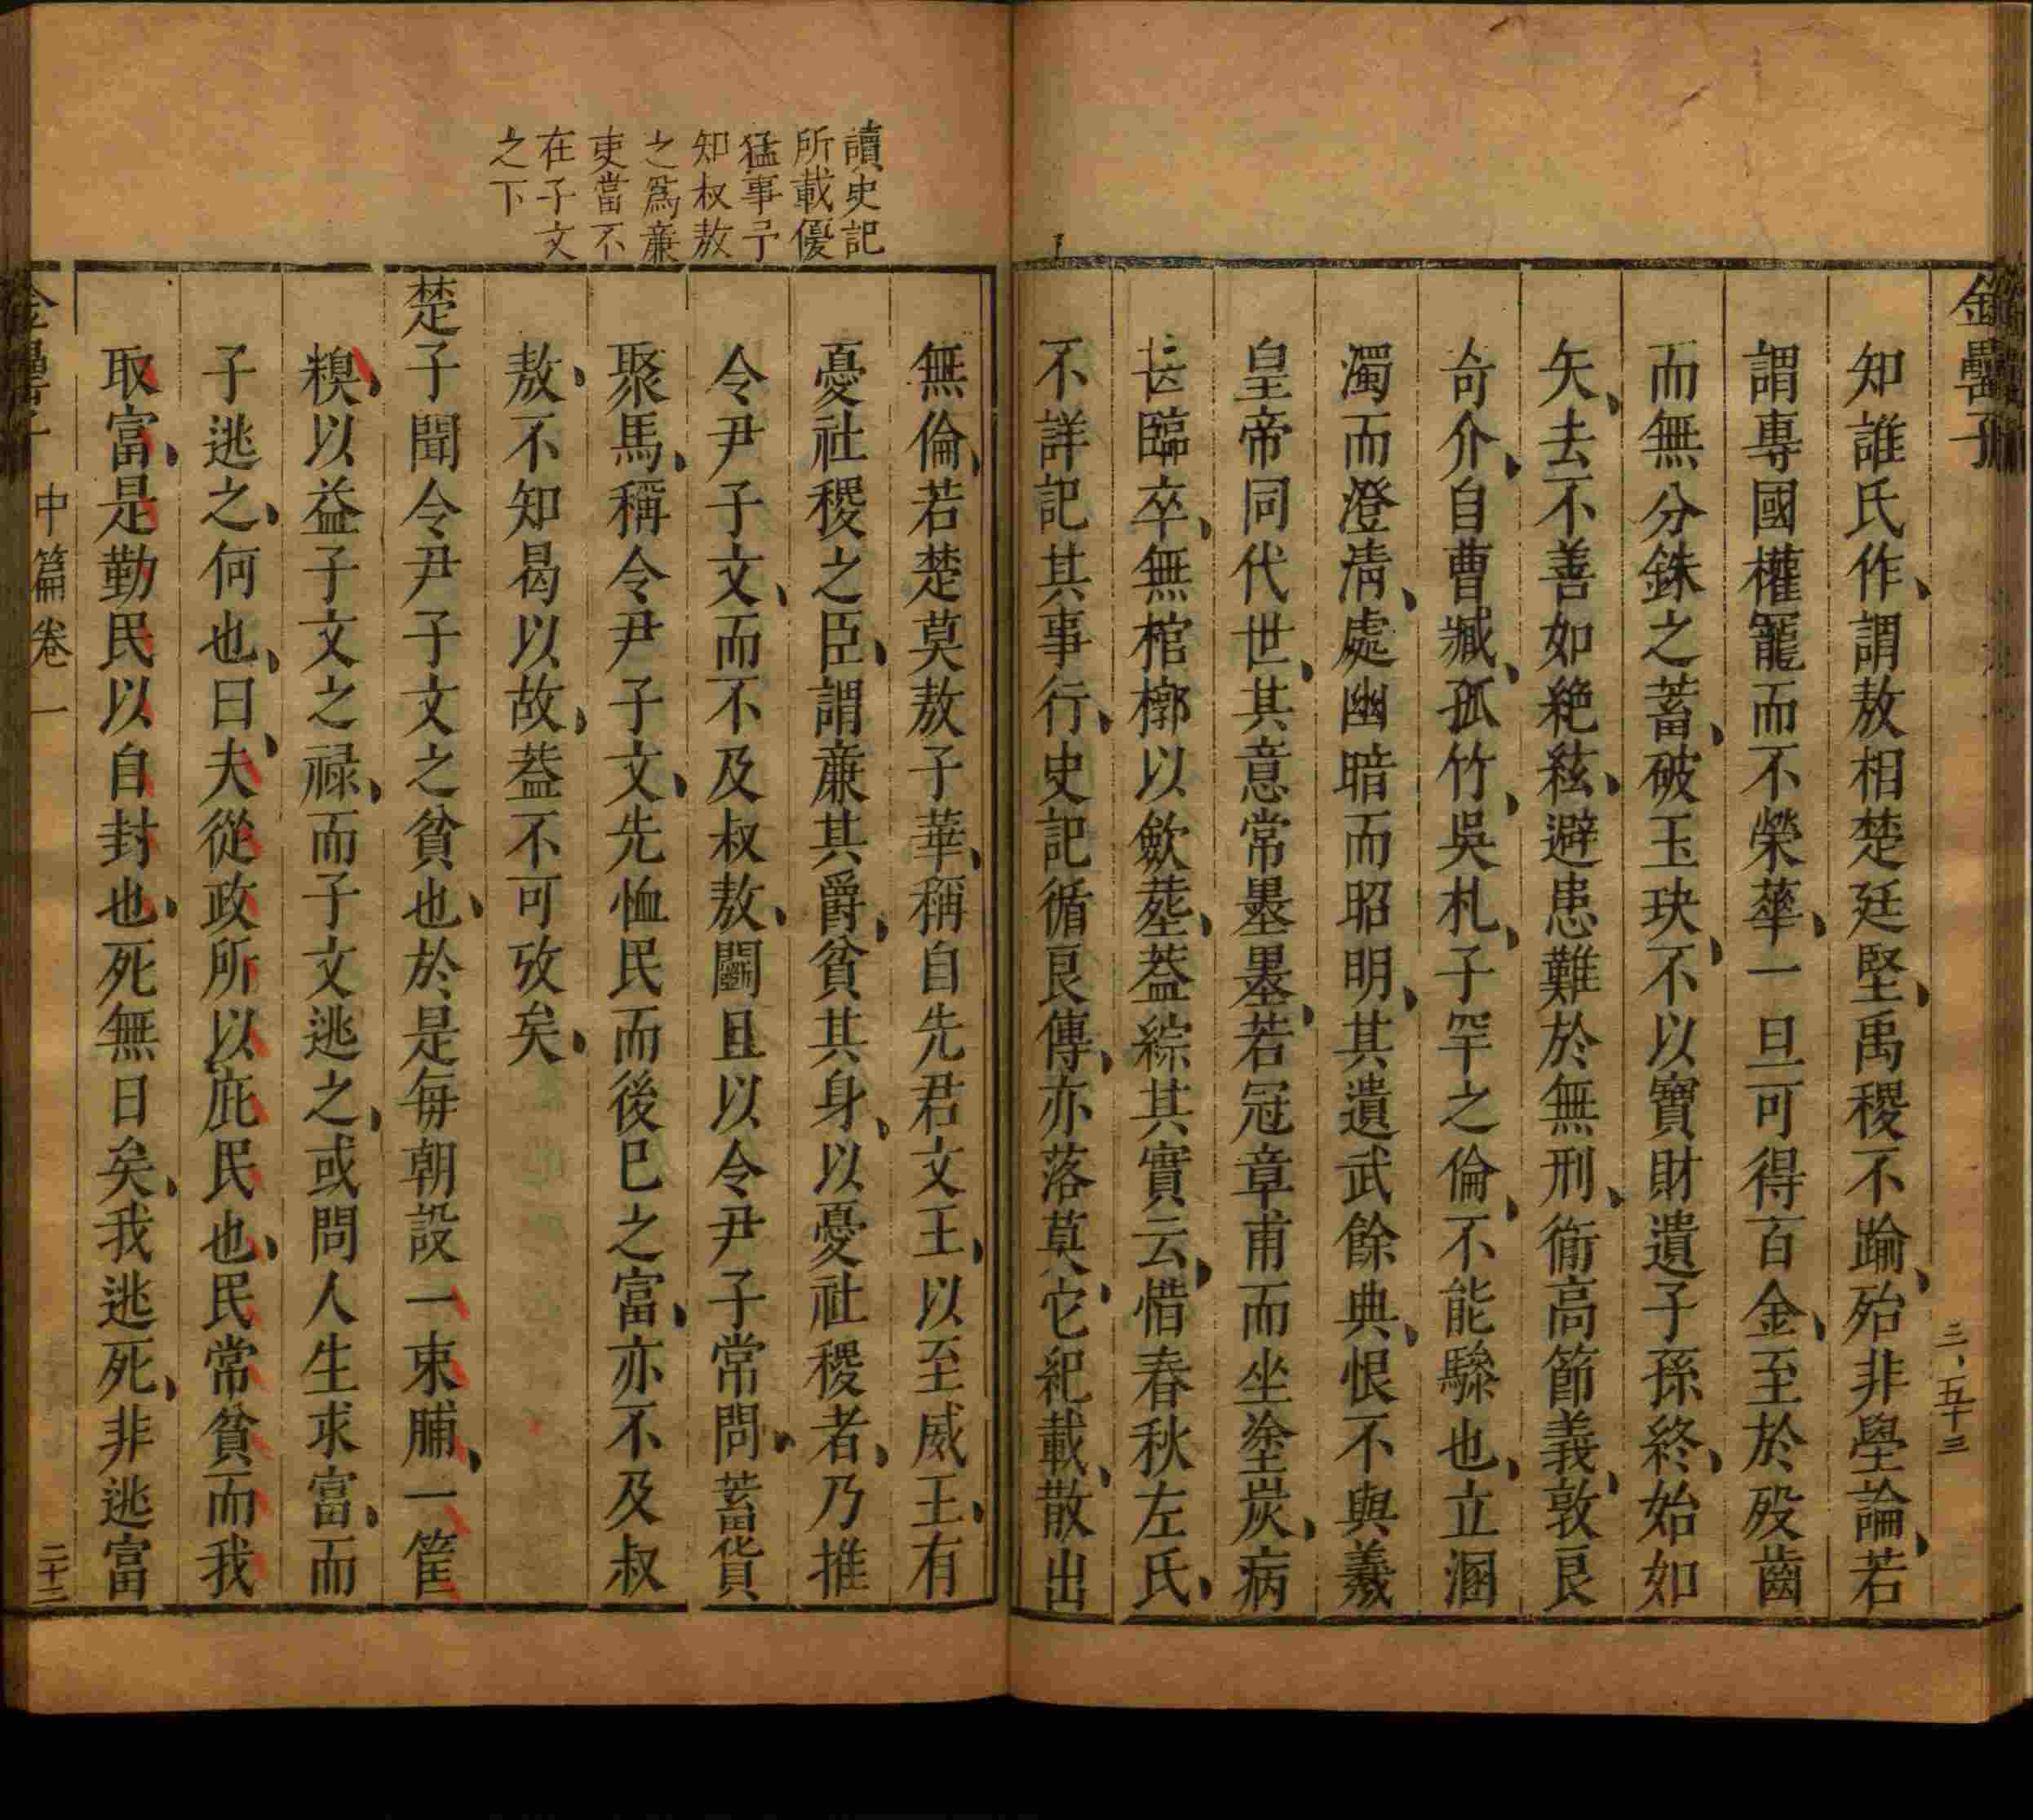 金罍子
知誰氏作謂敖相楚廷堅禹稷不踰殆非學論若
謂專國權寵而不榮華一旦可得百金至於歿齒
而無分銖之蓄破玉玦不以寶財遺子孫終始如
矢去不善如絶絃避患難於無刑衞高節義敦良
奇介自曹臧孤竹吳札子罕之倫不能驂也立溷
濁而澄清處幽暗而昭明其遺武餘典恨不與羲
皇帝同代世其意常墨墨若冠章甫而坐塗炭病
甚臨卒無棺槨以歛塟葢綜其實云惜春秋左氏
不詳記其事行史記循良傳亦落莫它紀載散出
讀史記
所載優
猛事予
知叔敖
之爲亷
吏當不
在子文
之下
無倫若楚莫敖子華稱自先君文王以至威王有
憂社稷之臣謂亷其爵貧其身以憂社稷者乃推
令尹子文而不及叔敖鬭且以令尹子常問蓄貨
聚馬稱令尹子文先恤民而後巳之富亦不及叔
敖不知曷以故葢不可攷矣
楚子聞令尹子文之貧也於是每朝設一束脯一筐
糗以益子文之祿而子文逃之或問人生求富而
子逃之何也曰夫從政所以庇民也民常貧而我
取富是勤民以自封也死無日矣我逃死非逃富
中篇卷一